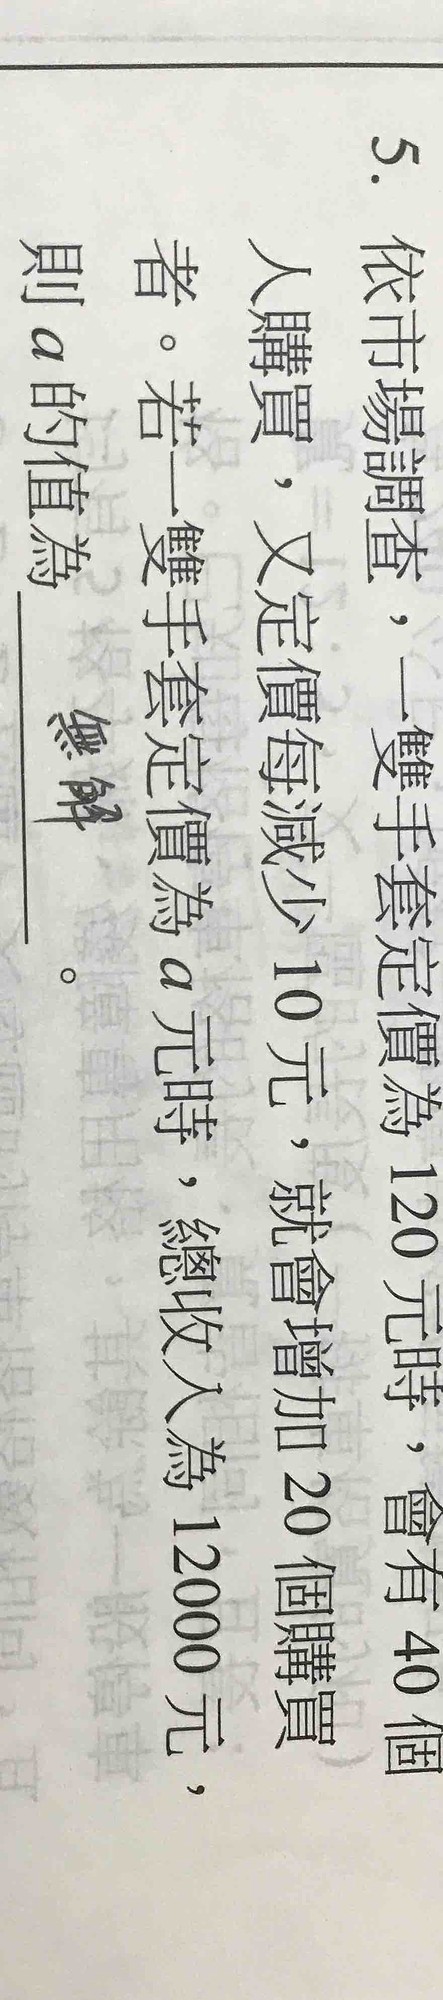 5. 依市場調查，一雙手套定價為 120 元時，會有 40 個
人購買，又定價每減少 10 元，就會增加 20 個購買
者。若一雙手套定價為 a 元時，總收入為 12000 元，
則 a 的值為 無解 。